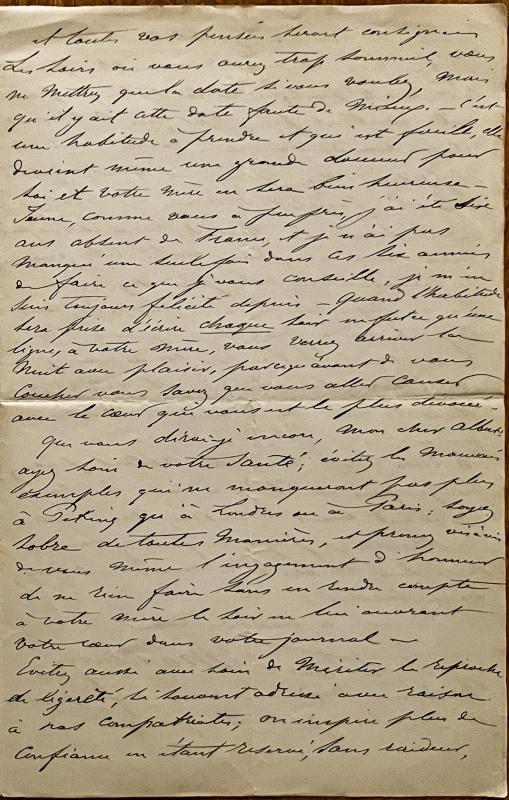 et toutes vos pensées seront consignées
Les soirs où vous aurez trop sommeil, vous
ne mettrez que la date si vous voulez, mais
qu'il y ait cette date faute de mieux. – C'est
une habitude à prendre et qui est facile, elle
devient même une grande douceur pour
soi et votre mère en sera bien heureuse –
Jeune, comme vous à peu près, j'ai été six
ans absent de France, et je n'ai pas
manqué une seule fois dans ces six années
de faire ce que je vous conseille, je m'en
suis toujours félicité depuis – Quand l'habitude
sera prise d'écrire chaque soir ne fut ce qu'une
ligne, à votre mère, vous verrez arriver la
nuit avec plaisir, parcequ'avant de vous
coucher vous savez que vous allez causer
avec le cœur qui vous est le plus dévoué –
Que vous dirai-je encore, mon cher Albert;
ayez soin de votre santé; évitez les mauvais
exemples qui ne manqueront pas plus
à Péking qu'à Londres ou à Paris; soyez
sobre de toutes manières, et prenez vis à vis
de vous même l'engagement d'honneur
de ne rien faire sans en rendre compte
à votre mère le soir en lui ouvrant
votre cœur dans votre journal –
Evitez aussi avec soin de mériter le reproche
de légereté, si souvent adressé avec raison
à nos compatriotes; on inspire plus de
confiance en étant reservé, sans raideur,